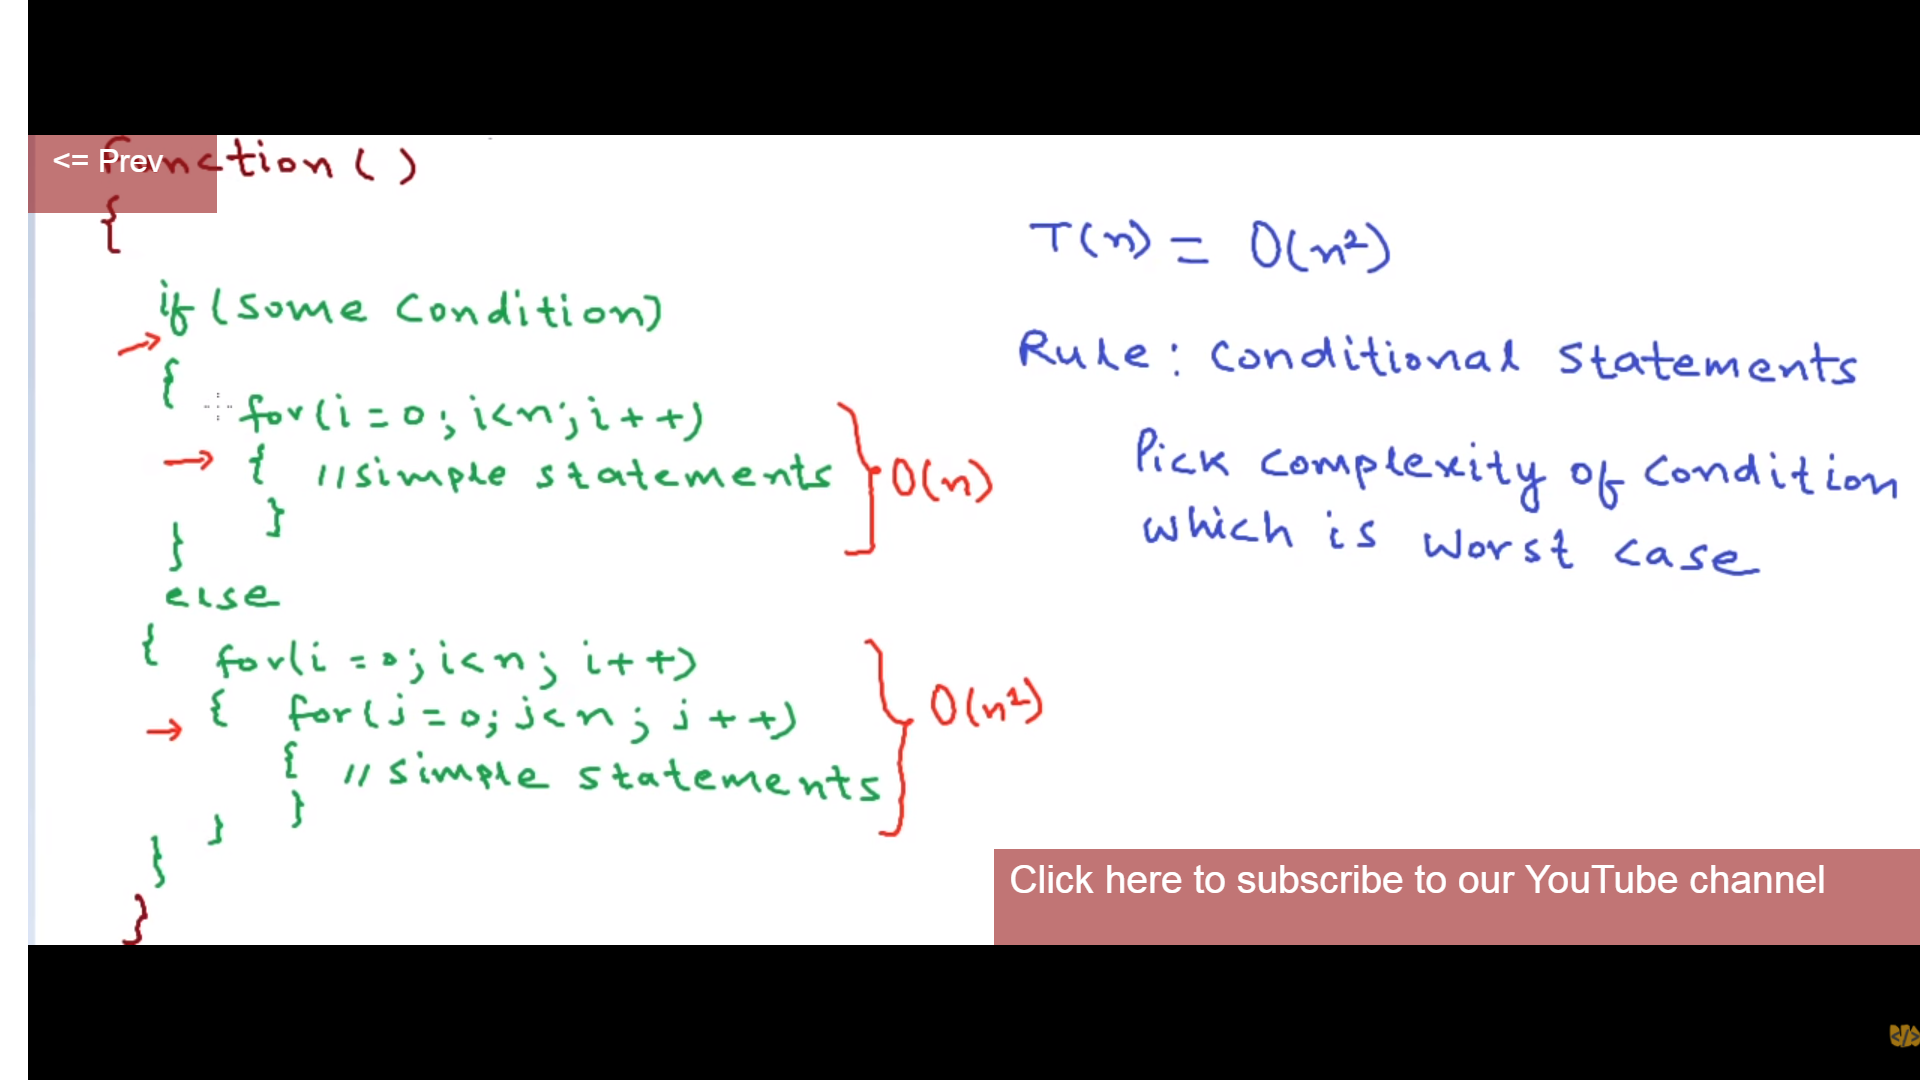 <= Prev
function ( )
{
if (some condition)
{
for (i = 0 ; i<n ; i + +)
{ // simple statements
}
}
else
{ for (i = 0 ; i<n ; i + +)
{ for (j = 0 ; j<n ; j + +)
{ // simple statements
}
}
}
}
O(n)
O(n²)
T(n) = O(n²)
Rule : conditional statements
Pick complexity of condition
which is worst case
Click here to subscribe to our YouTube channel